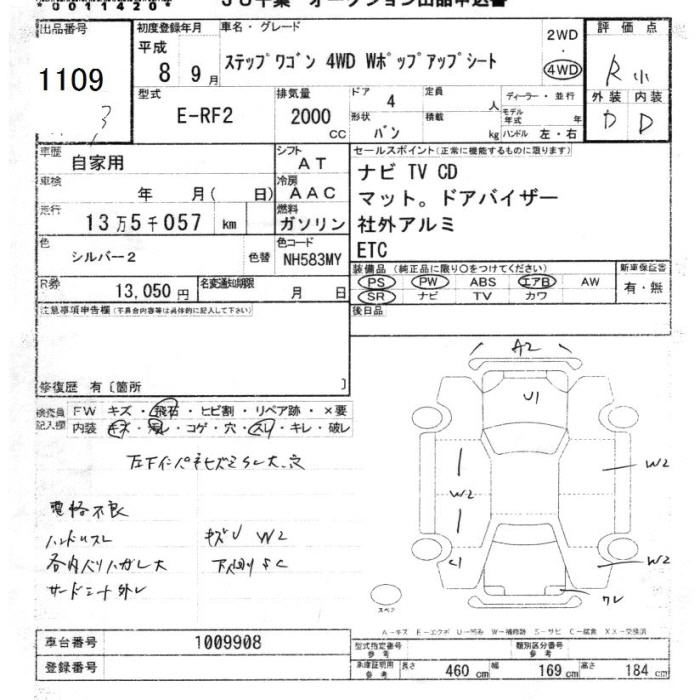 出品番号
1109
3
初度登録年月
平成
8 9月
車名・グレード
ステップワゴン 4WD Wポップアップシート
2WD
・
4WD
評価点
R 小
外装 内装
D D
型式
E-RF2
排気量
2000
CC
ドア
4
定員
人
形状
バン
積載
kg
ディーラー・並行
モデル年式
年
ハンドル 左・右
車歴
自家用
シフト
AT
車検
年 月( 日)
冷房
AAC
走行
13万5千057 km
燃料
ガソリン
色
シルバー2
色替
色コード
NH583MY
R券
13,050 円
名変通知期限
月 日
セールスポイント(正常に機能するものに限ります)
ナビ TV CD
マット。ドアバイザー
社外アルミ
ETC
装備品 (純正品に限り○をつけてください)
PS PW ABS エアB AW
SR ナビ TV カワ
新車保証書
有・無
後日品
注意事項申告欄(不具合内容等は具体的に記入して下さい)
修復歴 有〔箇所 〕
検査員記入欄
FW キズ・飛石・ヒビ割・リペア跡・×要
内装 キズ・汚レ・コゲ・穴・スレ・キレ・破レ
電格不良
ハンドルスレ
キズU W2
各内ハリハガレ大
サードシート外レ
A2
U1
W2
W2
C1
W2
ワレ
スペア
A-キズ E-エクボ U-凹み W-補修跡 S-サビ C-腐食 XX-交換済
車台番号
1009908
登録番号
型式指定番号
参考
類別区分番号
参考
車庫証明用
参考
長さ 460 cm 幅 169 cm 高さ 184 cm